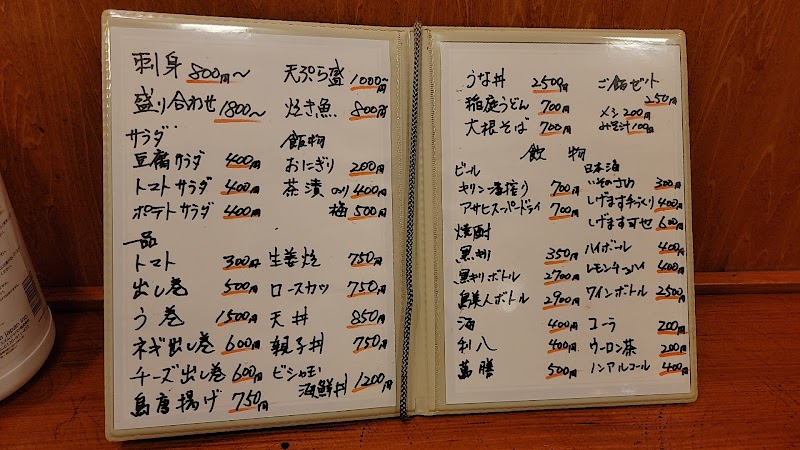 刺身 800円〜
盛り合わせ 1800〜
サラダ
豆腐サラダ 400円
トマトサラダ 400円
ポテトサラダ 400円
一品
トマト 300円
出し巻 500円
う巻 1500円
ネギ出し巻 600円
チーズ出し巻 600円
鳥唐揚げ 750円
天ぷら盛 1000円〜
焼き魚 800円
飯物
おにぎり 200円
茶漬 のり 400円
梅 500円
生姜焼 750円
ロースカツ 750円
天丼 850円
親子丼 750円
海鮮丼 1200円
うな丼 2500円
稲庭うどん 700円
大根そば 700円
ご飯セット
250円
メシ 200円
みそ汁 100円
飲物
ビール
キリン一番搾り 700円
アサヒスーパードライ 700円
焼酎
黒霧 350円
黒霧ボトル 2700円
島美人ボトル 2900円
海 400円
利八 400円
萬膳 500円
日本酒
300円
しげます 400円
しげます 600円
ハイボール 400円
レモンチューハイ 400円
ワインボトル 2500円
コーラ 200円
ウーロン茶 200円
ノンアルコール 400円